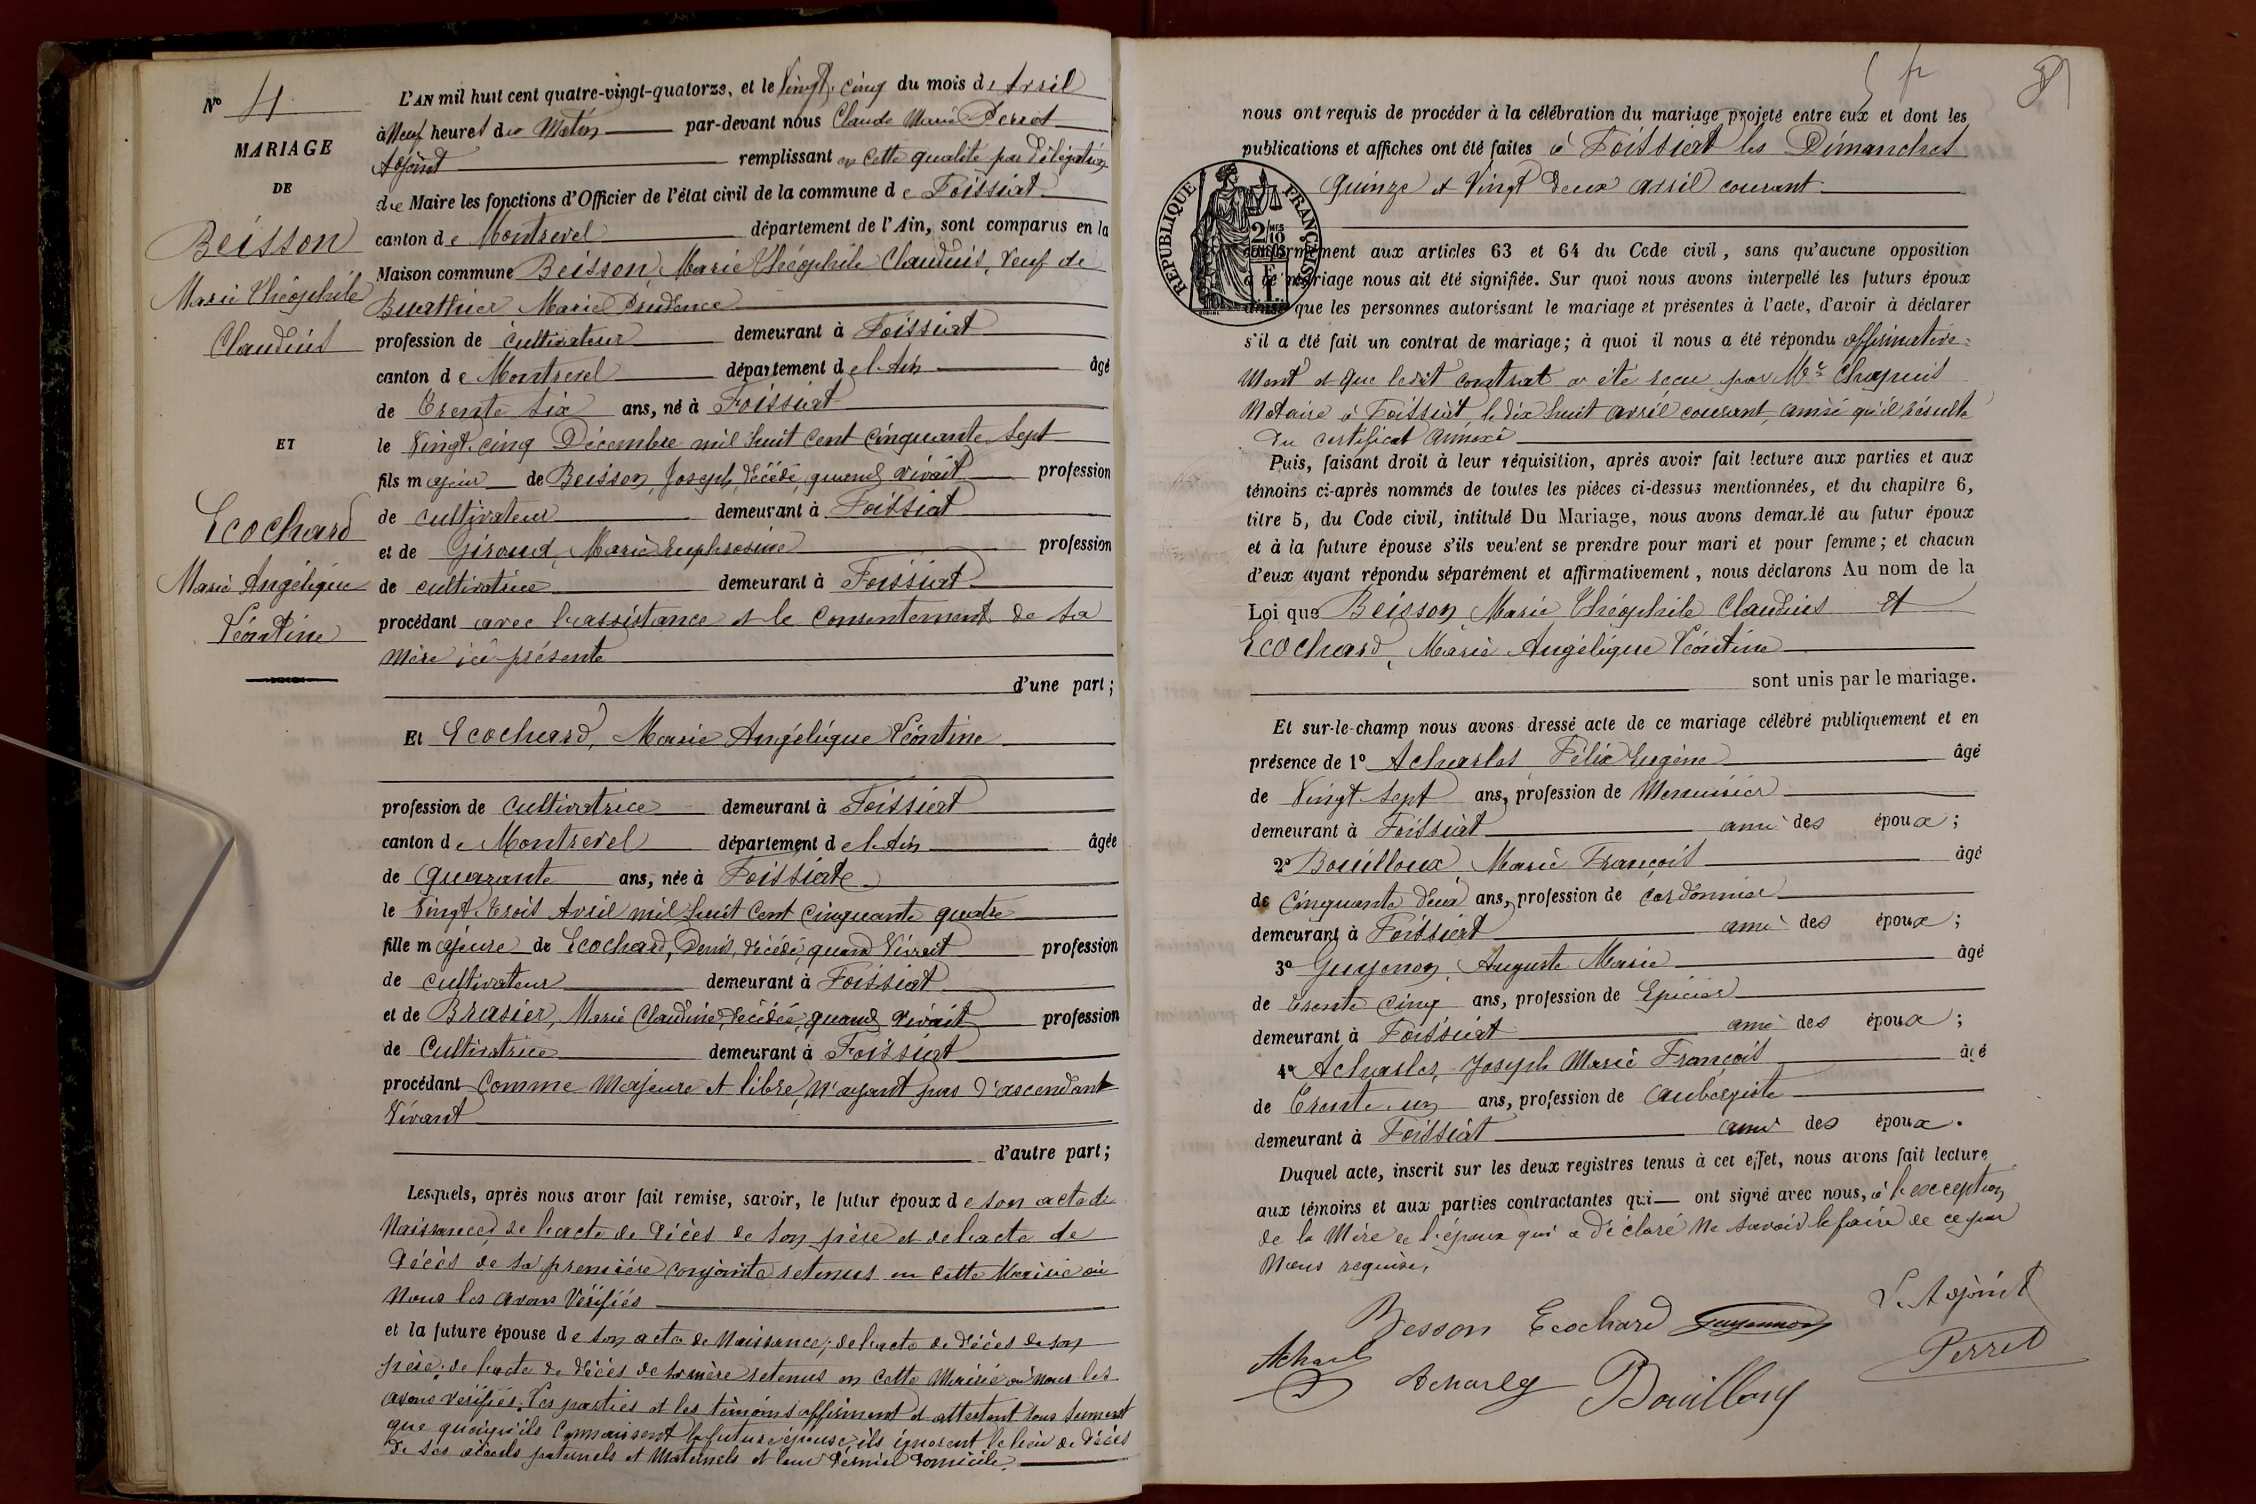 Nº 4
MARIAGE
DE
Beisson
Marie Théophile
Claudius
ET
Ecochard
Marie Angélique
Léontine
L'AN mil huit cent quatre-vingt-quatorze, et le Vingt-cinq du mois de Avril
à Neuf heures du Matin par-devant nous Claude Marie Perret
Adjoint remplissant en cette qualité par délégation
du Maire les fonctions d'Officier de l'état civil de la commune de Foissiat
canton de Montrevel département de l'Ain, sont comparus en la
Maison commune Beisson, Marie Théophile Claudius, Veuf de
Buathier Marie Prudence
profession de cultivateur demeurant à Foissiat
canton de Montrevel département de l'Ain âgé
de Trente Six ans, né à Foissiat
le Vingt-cinq Décembre mil huit cent cinquante Sept
fils majeur de Beisson, Joseph, décédé, quand vivait profession
de cultivateur demeurant à Foissiat
et de Giroud, Marie Euphrosine profession
de cultivatrice demeurant à Foissiat
procédant avec l'assistance et le consentement de sa
mère ici présente
d'une part;
Et Ecochard, Marie Angélique Léontine
profession de cultivatrice demeurant à Foissiat
canton de Montrevel département de l'Ain âgée
de quarante ans, née à Foissiat
le Vingt Trois Avril mil huit cent cinquante quatre
fille majeure de Ecochard, Denis, décédé, quand Vivait profession
de cultivateur demeurant à Foissiat
et de Brasier, Marie Claudine, décédée, quand vivait profession
de Cultivatrice demeurant à Foissiat
procédant Comme Majeure et libre, n'ayant pas d'ascendant
Vivant
d'autre part;
Lesquels, après nous avoir fait remise, savoir, le futur époux de son acte de
Naissance, de l'acte de décès de son père et de l'acte de
décès de sa première conjointe retenus en cette Mairie où
Nous les avons Vérifiés
et la future épouse de son acte de Naissance; de l'acte de décès de son
père; de l'acte de décès de sa mère retenus en cette Mairie où nous les
avons vérifiés. Les parties et les témoins affirment et attestent sous serment
que quoiqu'ils connaissent la future épouse, ils ignorent le lieu de décès
de ses aïeuls paternels et Maternels et leur dernier domicile.
5 fr
nous ont requis de procéder à la célébration du mariage projeté entre eux et dont les
publications et affiches ont été faites à Foissiat les Dimanches
quinze et Vingt deux avril courant
RÉPUBLIQUE FRANÇAISE
2/10 EN SUS
conformément aux articles 63 et 64 du Code civil, sans qu'aucune opposition
à ce mariage nous ait été signifiée. Sur quoi nous avons interpellé les futurs époux
ainsi que les personnes autorisant le mariage et présentes à l'acte, d'avoir à déclarer
s'il a été fait un contrat de mariage; à quoi il nous a été répondu affirmative=
Ment et que ledit contrat a été reçu par Mᵉ Chapuis
Notaire à Foissiat le dix huit avril courant, ainsi qu'il résulte
du certificat annexé
Puis, faisant droit à leur réquisition, après avoir fait lecture aux parties et aux
témoins ci-après nommés de toutes les pièces ci-dessus mentionnées, et du chapitre 6,
titre 5, du Code civil, intitulé Du Mariage, nous avons demandé au futur époux
et à la future épouse s'ils veulent se prendre pour mari et pour femme; et chacun
d'eux ayant répondu séparément et affirmativement, nous déclarons Au nom de la
Loi que Beisson, Marie Théophile Claudius et
Ecochard, Marie Angélique Léontine
sont unis par le mariage.
Et sur-le-champ nous avons dressé acte de ce mariage célébré publiquement et en
présence de 1º Acharles, Félix Eugène âgé
de Vingt Sept ans, profession de Menuisier
demeurant à Foissiat ami des époux;
2º Bouilloux, Marie François âgé
de Cinquante Deux ans, profession de Cordonnier
demeurant à Foissiat ami des époux;
3º Guyonnon, Auguste Marie âgé
de Trente Cinq ans, profession de Epicier
demeurant à Foissiat ami des époux;
4º Acharles, Joseph Marie François âgé
de Trente-un ans, profession de Aubergiste
demeurant à Foissiat ami des époux.
Duquel acte, inscrit sur les deux registres tenus à cet effet, nous avons fait lecture
aux témoins et aux parties contractantes qui ont signé avec nous, à l'exception
de la Mère de l'époux qui a déclaré ne savoir le faire de ce par
Nous requise.
L'Adjoint
Besson Ecochard Guyonnon
Perret
Acharle Acharles Bouilloux